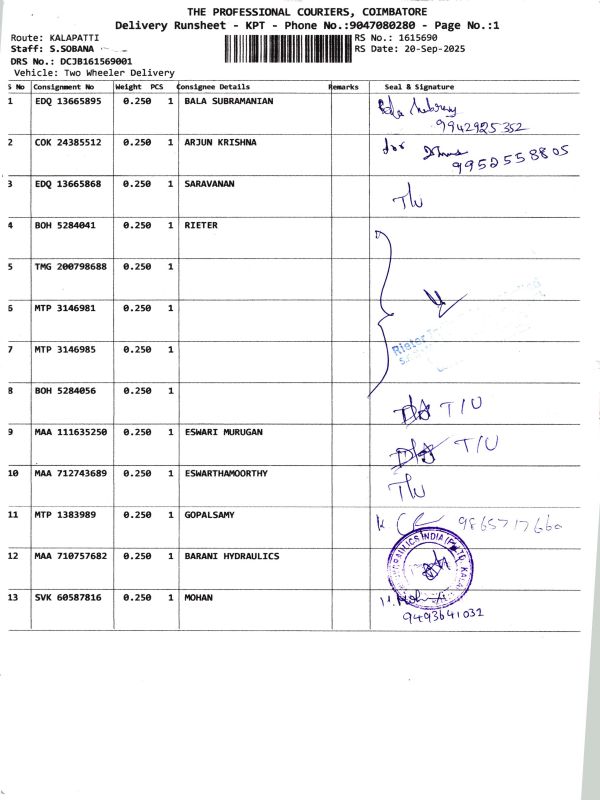 THE PROFESSIONAL COURIERS, COIMBATORE
Delivery Runsheet - KPT - Phone No.:9047080280 - Page No.:1
Route: KALAPATTI RS No.: 1615690
Staff: S.SOBANA RS Date: 20-Sep-2025
DRS No.: DCJB161569001
Vehicle: Two Wheeler Delivery
S No Consignment No Weight PCS Consignee Details Remarks Seal & Signature
1 EDQ 13665895 0.250 1 BALA SUBRAMANIAN
9942925352
2 COK 24385512 0.250 1 ARJUN KRISHNA
9952558805
3 EDQ 13665868 0.250 1 SARAVANAN
4 BOH 5284041 0.250 1 RIETER
5 TMG 200798688 0.250 1
6 MTP 3146981 0.250 1
7 MTP 3146985 0.250 1
Rieter
8 BOH 5284056 0.250 1 T/U
9 MAA 111635250 0.250 1 ESWARI MURUGAN T/U
10 MAA 712743689 0.250 1 ESWARTHAMOORTHY
11 MTP 1383989 0.250 1 GOPALSAMY 9865717660
12 MAA 710757682 0.250 1 BARANI HYDRAULICS
HYDRAULICS INDIA (P) LTD
13 SVK 60587816 0.250 1 MOHAN
9493641032